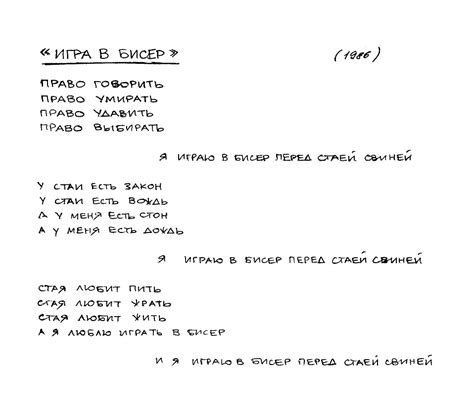 «ИГРА В БИСЕР» (1986)
ПРАВО ГОВОРИТЬ
ПРАВО УМИРАТЬ
ПРАВО УДАВИТЬ
ПРАВО ВЫБИРАТЬ
Я ИГРАЮ В БИСЕР ПЕРЕД СТАЕЙ СВИНЕЙ
У СТАИ ЕСТЬ ЗАКОН
У СТАИ ЕСТЬ ВОЖДЬ
А У МЕНЯ ЕСТЬ СТОН
А У МЕНЯ ЕСТЬ ДОЖДЬ
Я ИГРАЮ В БИСЕР ПЕРЕД СТАЕЙ СВИНЕЙ
СТАЯ ЛЮБИТ ПИТЬ
СТАЯ ЛЮБИТ ЖРАТЬ
СТАЯ ЛЮБИТ ЖИТЬ
А Я ЛЮБЛЮ ИГРАТЬ В БИСЕР
И Я ИГРАЮ В БИСЕР ПЕРЕД СТАЕЙ СВИНЕЙ